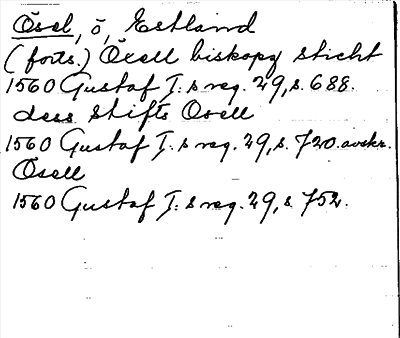 Ösel, ö, Estland
(forts.) Öxell biskopz sticht
1560 Gustaf I:s reg. 29, s. 688.
dess stifts Osell
1560 Gustaf I:s reg. 29, s. 720. avskr.
Ösell
1560 Gustaf I:s reg. 29, s. 752.